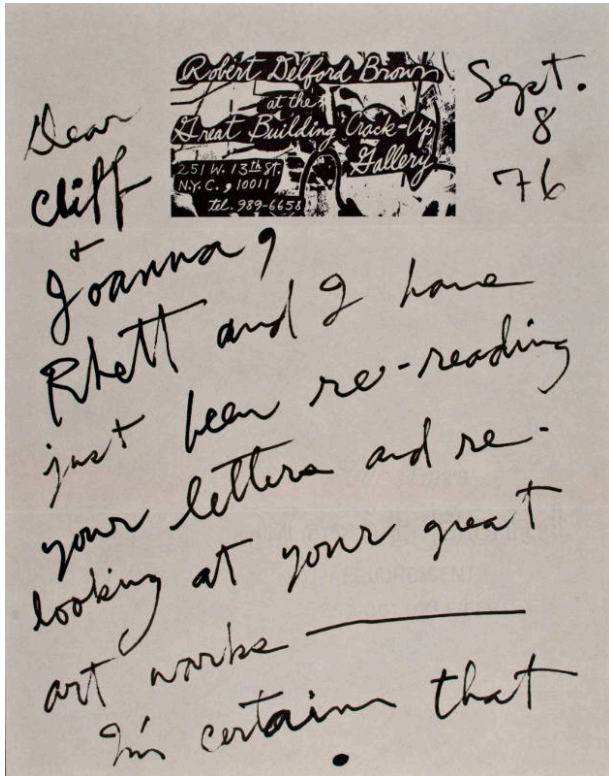 Robert Delford Brown
at the
Great Building Crack-Up
Gallery
251 W. 13th ST.
N.Y.C., 10011
tel. 989-6658
Sept.
8
76
Dear
Cliff
+
Joanna,
Rhett and I have
just been re-reading
your letters and re-
looking at your great
art works ———
I'm certain that